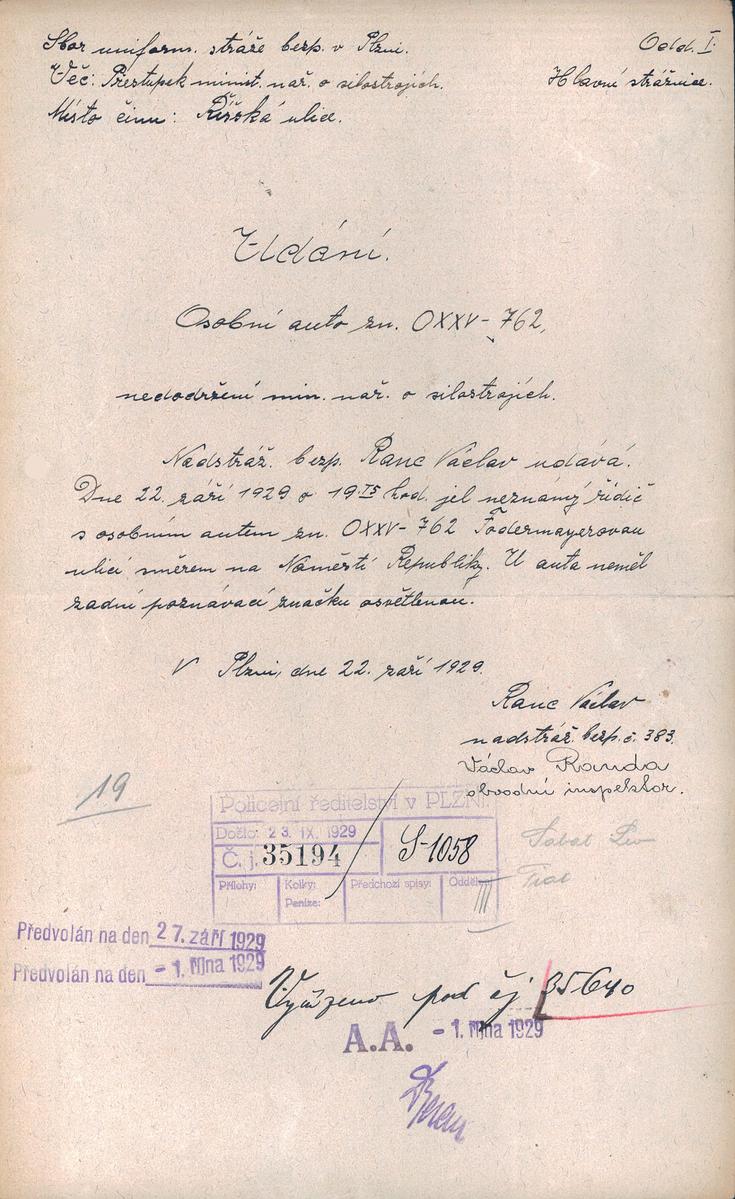 Sbor uniform. stráže bezp. v Plzni. Odd. I.
Věc: Přestupek minist. nař. o silostrojích. Hlavní strážnice.
Místo činu: Říšská ulice.
Udání.
Osobní auto zn. OXXV-762,
nedodržení min. nař. o silostrojích.
Nadstráž. bezp. Ranc Václav udává.
Dne 22. září 1929 o 19.15 hod. jel neznámý řidič
s osobním autem zn. OXXV-762 Fodermayerovou
ulicí směrem na Náměstí Republiky. U auta neměl
zadní poznávací značku osvětlenou.
V Plzni, dne 22. září 1929.
Ranc Václav
nadstráž. bezp. č. 383.
Václav Randa
obvodní inspektor.
19
Policejní ředitelství v PLZNI.
Došlo: 23. IX. 1929
Č. j. 35194 S-1058
Přílohy: Kolky: Předchozí spisy: Odděl.
Peníze: III
Předvolán na den 27. září 1929
Předvolán na den - 1. října 1929
Vyřízeno pod čj 35640
A.A. - 1. října 1929